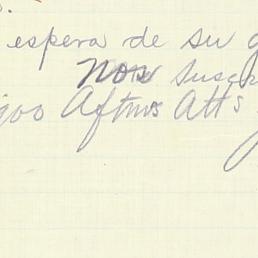 espera de su
Nos suscr
Aftmos Atts